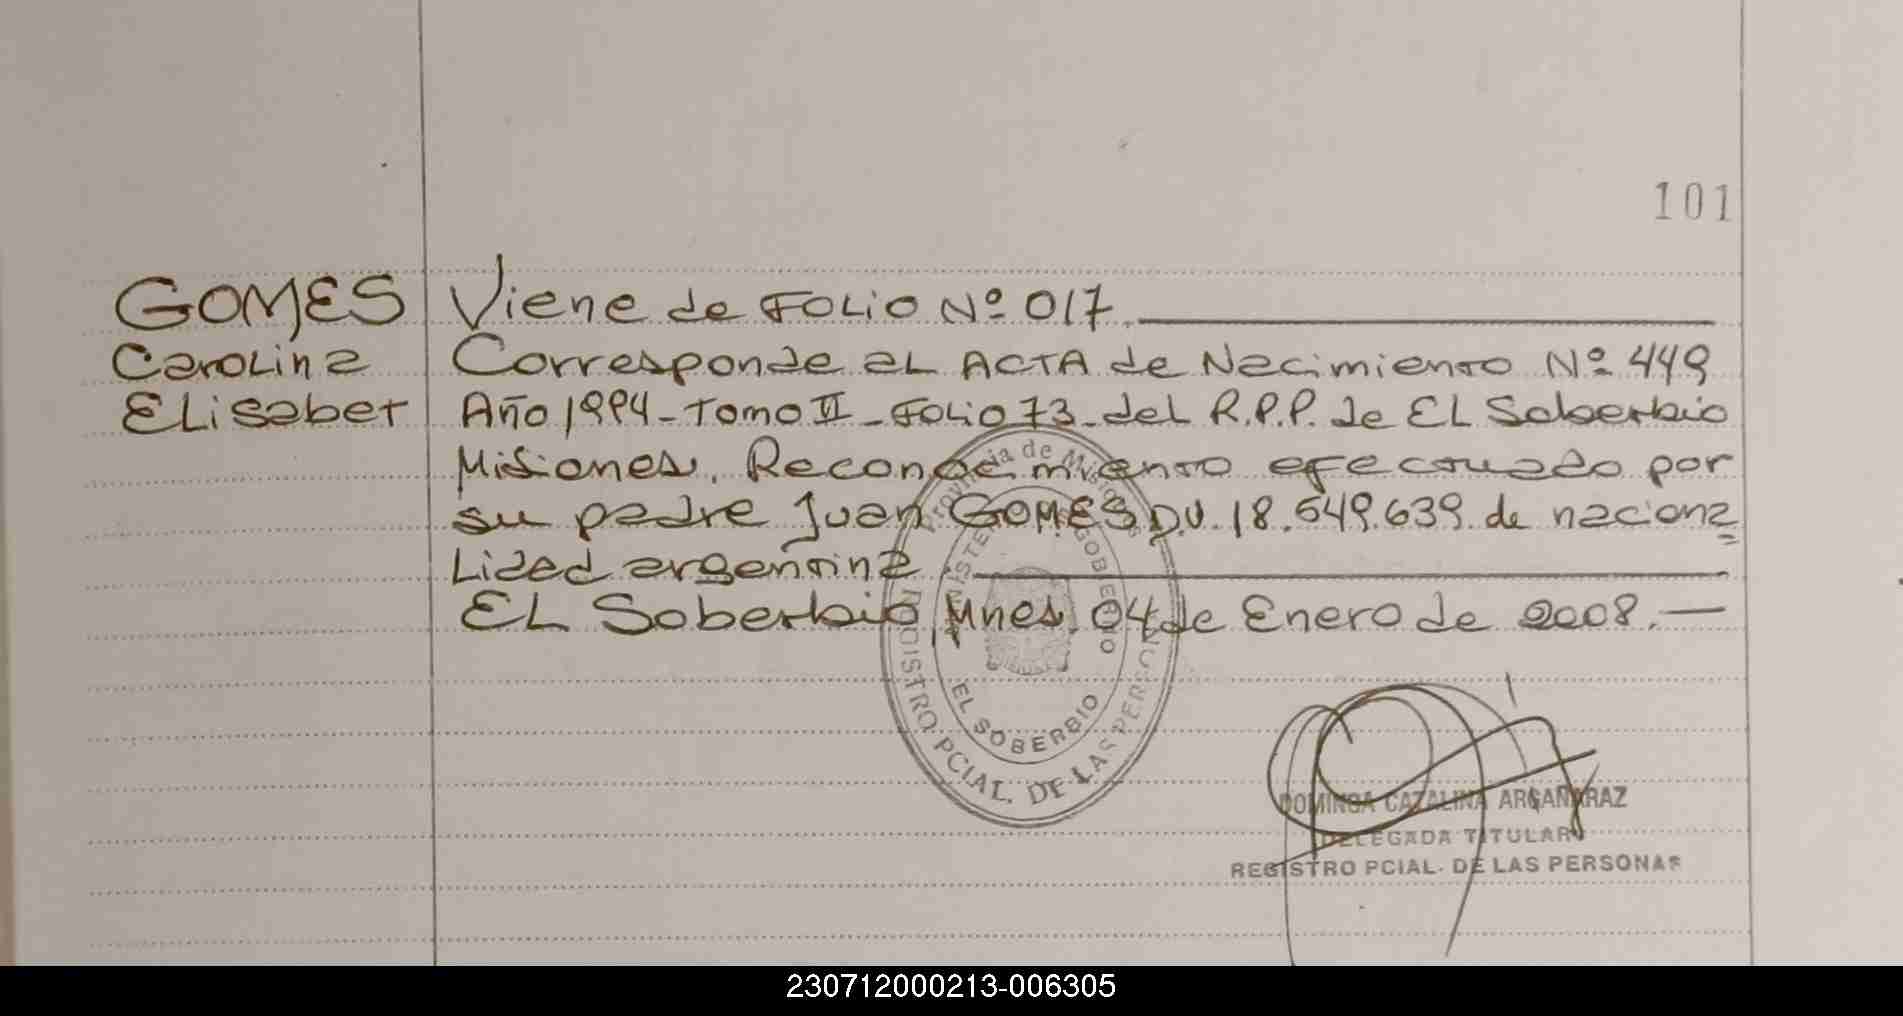 101
GOMES Viene de FOLIO Nº 017
Carolina Corresponde al ACTA de Nacimiento Nº 449
Elisabet Año 1994 - Tomo II - Folio 73 - del R.P.P. de EL Soberbio
Misiones. Reconocimiento efectuado por
su padre Juan GOMES D.U. 18.549.639 de naciona
Lidad argentina
EL Soberbio, Mnes. 04 de Enero de 2008. —
Provincia de Misiones
MINISTERIO GOBIERNO
EL SOBERBIO
REGISTRO PCIAL. DE LAS PERSONAS
DOMINGA CATALINA ARGAÑARAZ
DELEGADA TITULAR
REGISTRO PCIAL. DE LAS PERSONAS
230712000213-006305